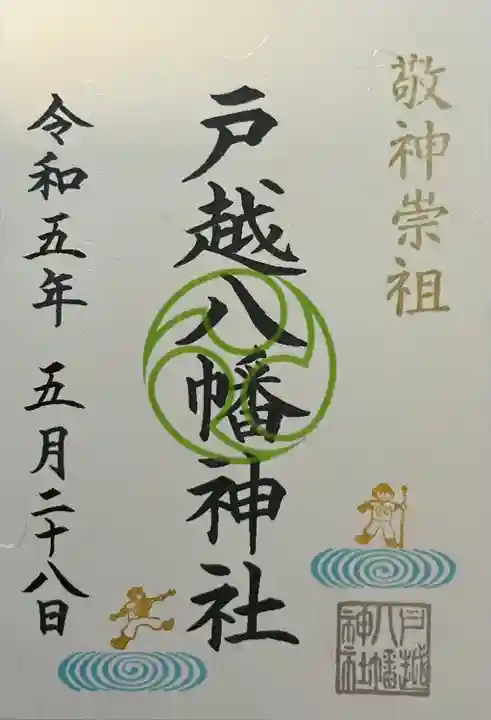 敬神崇祖
戸越八幡神社
戸越八幡神社
令和五年 五月二十八日